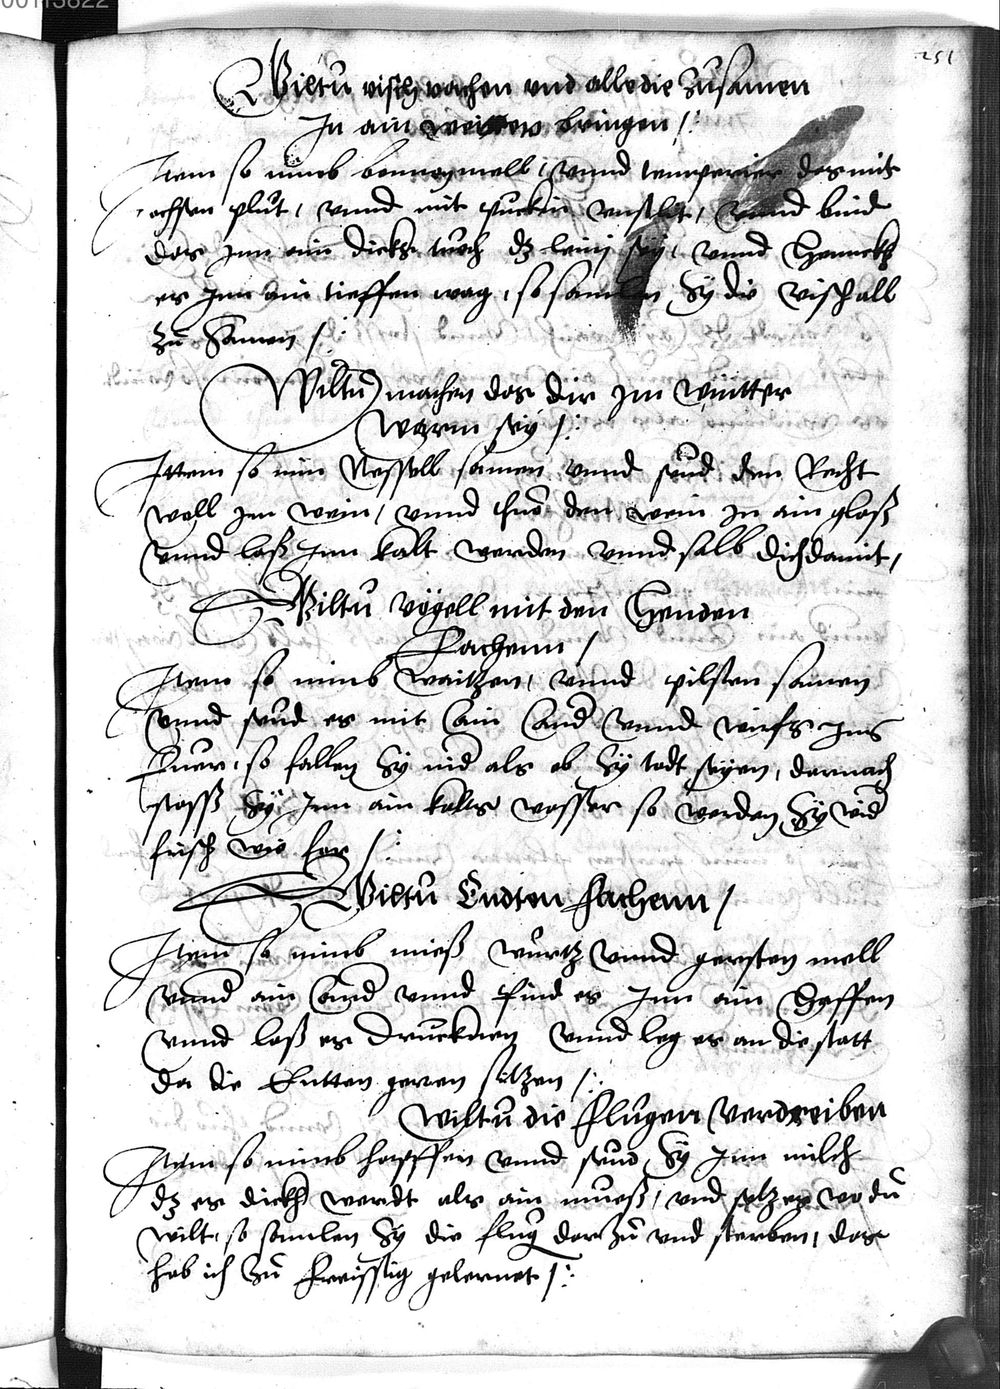 00113822
251
Wiltu visch vachen vnd alle die zusamen
In ain weitter bringen /:
Item so nimb bonnen mell / vnnd temperier das mit
ochssen plut / vnnd mit bucken vnslet / vnnd bind
das Inn ain dickh tuoch dz leinj sey / vnnd henckh
es Inn ain tieffen wag, so samlen sy die visch all
zu samen /:
Wiltu machen das dir Im wintter
warm sey /:
Ittem so nim Nessell samen vnnd seud den Recht
woll Im wein / vnnd thue den wein In ain glaß
vnnd laß Inn kalt werden vnnd salb dich damit /
Wiltu vögell mit den Henden
Fachenn /
Item so nimb Waitzen, vnnd pilsen samen
vnnd seud es mit ain and vnnd wirfs Ins
Luer, so fallen sy nid als ob sy todt seyen, darnach
stoss sy Inn ain kalts wasser so werden sy wid
frisch wie for /:
Wiltu Endten fachenn /
Item so nimb mieß wurtz vnnd gersten mell
vnnd ain and vnnd sind es Inn ain Haffen
vnnd laß es druckhnen vnnd leg es an die statt
da die Entten geren sitzen /:
Wiltu die flugen verdreiben
Item so nimb hopffen vnnd seud sy Inn milch
dz es dickh werdt als ain mueß / vnd setz es wo du
wilt, so samlen sy die flug darzu vnd sterben, das
hab ich zu Freissing gelernet /: